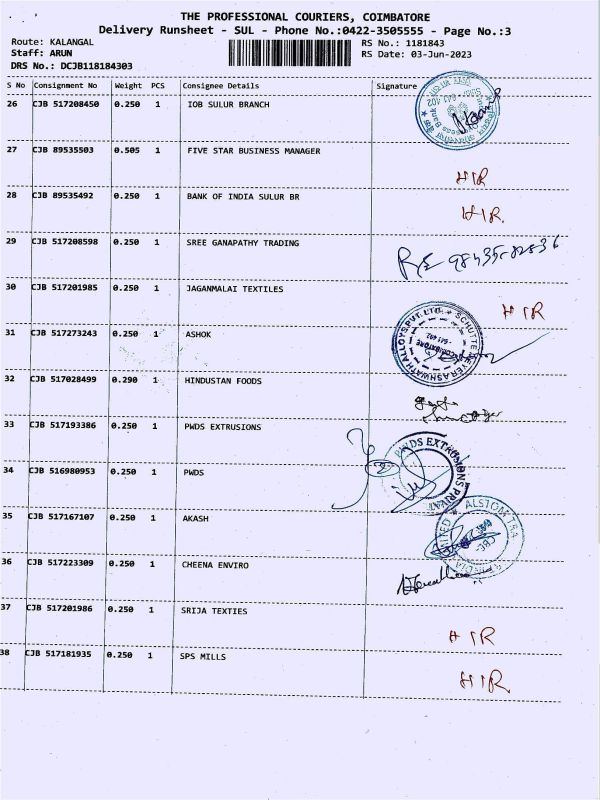 THE PROFESSIONAL COURIERS, COIMBATORE
Delivery Runsheet - SUL - Phone No.:0422-3505555 - Page No.:3
Route: KALANGAL RS No.: 1181843
Staff: ARUN RS Date: 03-Jun-2023
DRS No.: DCJB118184303
S No Consignment No Weight PCS Consignee Details Signature
26 CJB 517208450 0.250 1 IOB SULUR BRANCH
641 402
27 CJB 89535503 0.505 1 FIVE STAR BUSINESS MANAGER
HIR
28 CJB 89535492 0.250 1 BANK OF INDIA SULUR BR
HIR.
29 CJB 517208598 0.250 1 SREE GANAPATHY TRADING
30 CJB 517201985 0.250 1 JAGANMALAI TEXTILES
HIR
31 CJB 517273243 0.250 1 ASHOK
SCHUTTE MEYER ASHWATH ALLOYS PVT. LTD.
COIMBATORE
32 CJB 517028499 0.290 1 HINDUSTAN FOODS
33 CJB 517193386 0.250 1 PWDS EXTRUSIONS
PWDS EXTRUSIONS PRIVAT
34 CJB 516980953 0.250 1 PWDS
35 CJB 517167107 0.250 1 AKASH
ALSTOM
CBE
36 CJB 517223309 0.250 1 CHEENA ENVIRO
37 CJB 517201986 0.250 1 SRIJA TEXTIES
HIR
38 CJB 517181935 0.250 1 SPS MILLS
HIR.